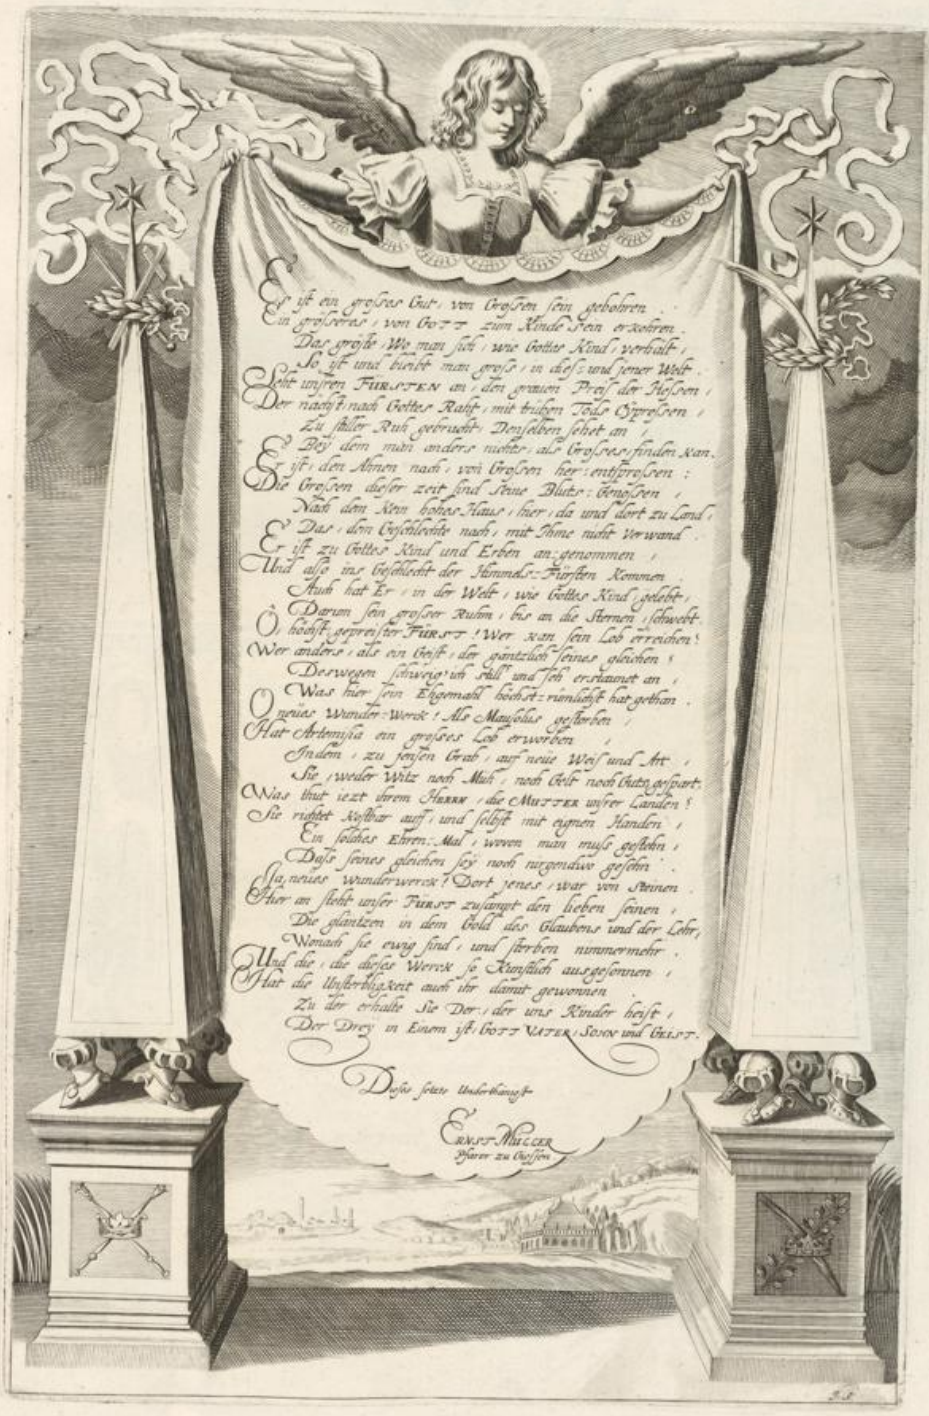 Es ist ein grosses Gut, von Grossen sein gebohren.
Ein grösseres, von GOTT zum Kinde sein erkohren.
Das gröste, Wo man sich, wie Gottes Kind, verhält,
So ist und bleibt man gross, in dies- und jener Welt.
Seht unsren FÜRSTEN an, den grauen Preis der Hessen,
Der nächst, nach Gottes Raht, mit trüben Tods Cypressen,
Zu stiller Ruh gebracht, Denselben sehet an,
Bey dem man anders nichts, als Grosses, finden kan.
Er ist, den Ahnen nach, von Grossen her-entsprossen:
Die Grossen dieser zeit sind Seine Bluts-Genossen,
Nach dem Kein hohes Haus, hier, da und dort zu Land,
Das, dem Geschlechte nach, mit Ihme nicht Verwand.
Er ist zu Gottes Kind und Erben an-genommen,
Und also ins Geschlecht der Himmels-Fürsten Kommen.
Auch hat Er, in der Welt, wie Gottes Kind, gelebt,
Darum sein grosser Ruhm, bis an die Sternen, schwebt.
O, höchst gepreister FÜRST! Wer kan sein Lob erreichen?
Wer anders, als ein Geist, der gäntzlich seines gleichen?
Deswegen schweig ich still und seh erstaunet an,
Was hier sein Ehgemahl höchst-rümlichst hat gethan.
O neües Wunder-Werck! Als Mausolus gestorben,
Hat Artemisia ein grosses Lob erworben,
Indem, zu jensen Grab, auf neüe Weis und Art,
Sie, weder Witz noch Müh, noch Gelt noch Guth gespart.
Was thut iezt ihrem HERRN, die MUTTER unsrer Landen?
Sie richtet Kostbar auff, und selbst mit eignen Handen,
Ein solches Ehren-Mal, wovon man muss gestehn,
Dass seines gleichen sey noch nirgendwo gesehn.
Ja, neües wunderwerck! Dort jenes, war von Steinen.
Hier an steht unser FÜRST zusampt den lieben seinen,
Die gläntzen in dem Gold des Glaubens und der Lehr,
Wonach sie ewig sind, und sterben nimmermehr.
Und die, die dieses Werck so Künstlich ausgesonnen,
Hat die Unsterbligkeit auch ihr damit gewonnen.
Zu der erhalte Sie Der, der uns Kinder heist,
Der Drey in Einem ist, GOTT VATER, SOHN und GEIST.
Dieses setzte Underthänigst
ERNST MÜLLER
Pfarer zu Giessen